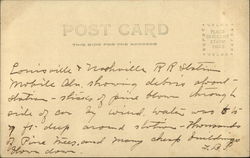 POST CARD
THIS SIDE FOR THE ADDRESS
PLACE
STAMP
HERE
Louisville & Nashville R R Station
Mobile Ala, showing debris about
station - sticks of pine blown through
side of car by wind, water was
ft. deep around station - thousands
Pine trees, and many cheap buildings
blown down.